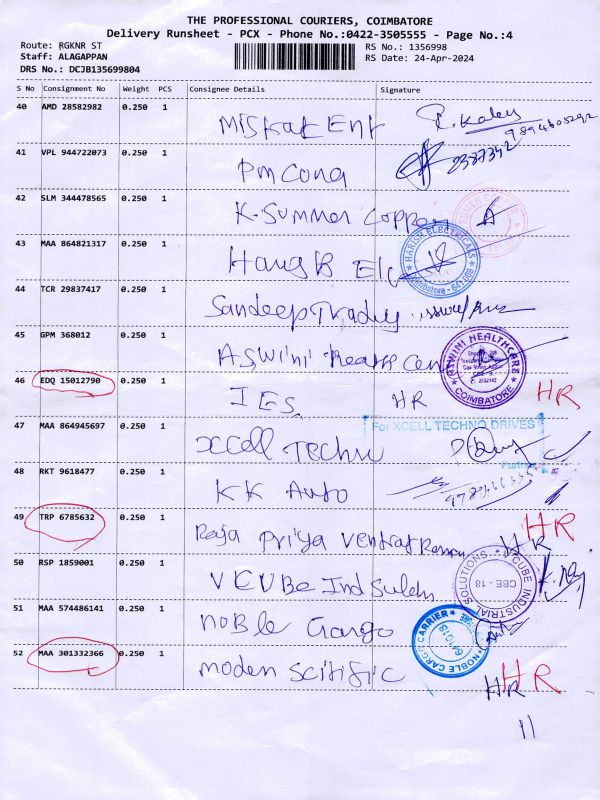 THE PROFESSIONAL COURIERS, COIMBATORE
Delivery Runsheet - PCX - Phone No.:0422-3505555 - Page No.:4
Route: RGKNR ST
RS No.: 1356998
Staff: ALAGAPPAN
RS Date: 24-Apr-2024
DRS No.: DCJB135699804
S No Consignment No Weight PCS Consignee Details Signature
40 AMD 28582982 0.250 1 Miskat Ent
41 VPL 944722073 0.250 1 Pm Cona 2387342
42 SLM 344478565 0.250 1 K-Summer Copper
43 MAA 864821317 0.250 1
HARISH ELECTRICALS
Coimbatore - 641 018
44 TCR 29837417 0.250 1 Sandeep Trading
45 GPM 368012 0.250 1 ASWini Health Cen
ASWINI HEALTHCARE
COIMBATORE
46 EDQ 15012790 0.250 1 IES HR HR
47 MAA 864945697 0.250 1 Xcell Techno
For XCELL TECHNO DRIVES
Partner
48 RKT 9618477 0.250 1 KK Auto
49 TRP 6785632 0.250 1 Raja Priya Venkat Raman HR HR
50 RSP 1859001 0.250 1 VCUBe Ind Suleh
VCUBE INDUSTRIAL SOLUTIONS
CBE - 18
51 MAA 574486141 0.250 1 noBle Cargo
NOBLE CARGO CARRIER
52 MAA 301332366 0.250 1 moden Scitific HR HR
11